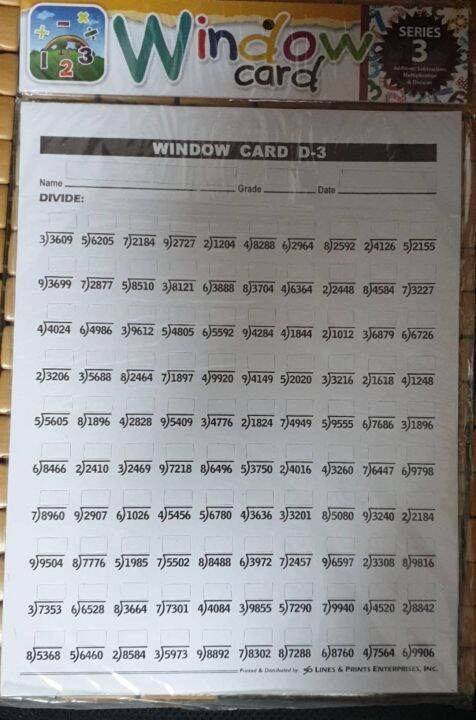 Window
card
SERIES
3
Addition, Subtraction,
Multiplication
& Division
1 2 3
WINDOW CARD D-3
Name Grade Date
DIVIDE:
3)3609 5)6205 7)2184 9)2727 2)1204 4)8288 6)2964 8)2592 2)4126 5)2155
9)3699 7)2877 5)8510 3)8121 6)3888 8)3704 4)6364 2)2448 8)4584 7)3227
4)4024 6)4986 3)9612 5)4805 6)5592 9)4284 4)1844 2)1012 3)6879 6)6726
2)3206 3)5688 8)2464 7)1897 4)9920 9)4149 5)2020 3)3216 2)1618 4)1248
5)5605 8)1896 4)2828 9)5409 3)4776 2)1824 7)4949 5)9555 6)7686 3)1896
6)8466 2)2410 3)2469 9)7218 8)6496 5)3750 2)4016 4)3260 7)6447 6)9798
7)8960 9)2907 6)1026 4)5456 5)6780 4)3636 3)3201 8)5080 9)3240 2)2184
9)9504 8)7776 5)1985 7)5502 8)8488 6)3972 7)2457 9)6597 2)3308 8)9816
3)7353 6)6528 8)3664 7)7301 4)4084 3)9855 5)7290 7)9940 4)4520 2)8842
8)5368 5)6460 2)8584 3)5973 9)8892 7)8302 8)7288 6)8760 4)7564 6)9906
Printed & Distributed by: LINES & PRINTS ENTERPRISES, INC.